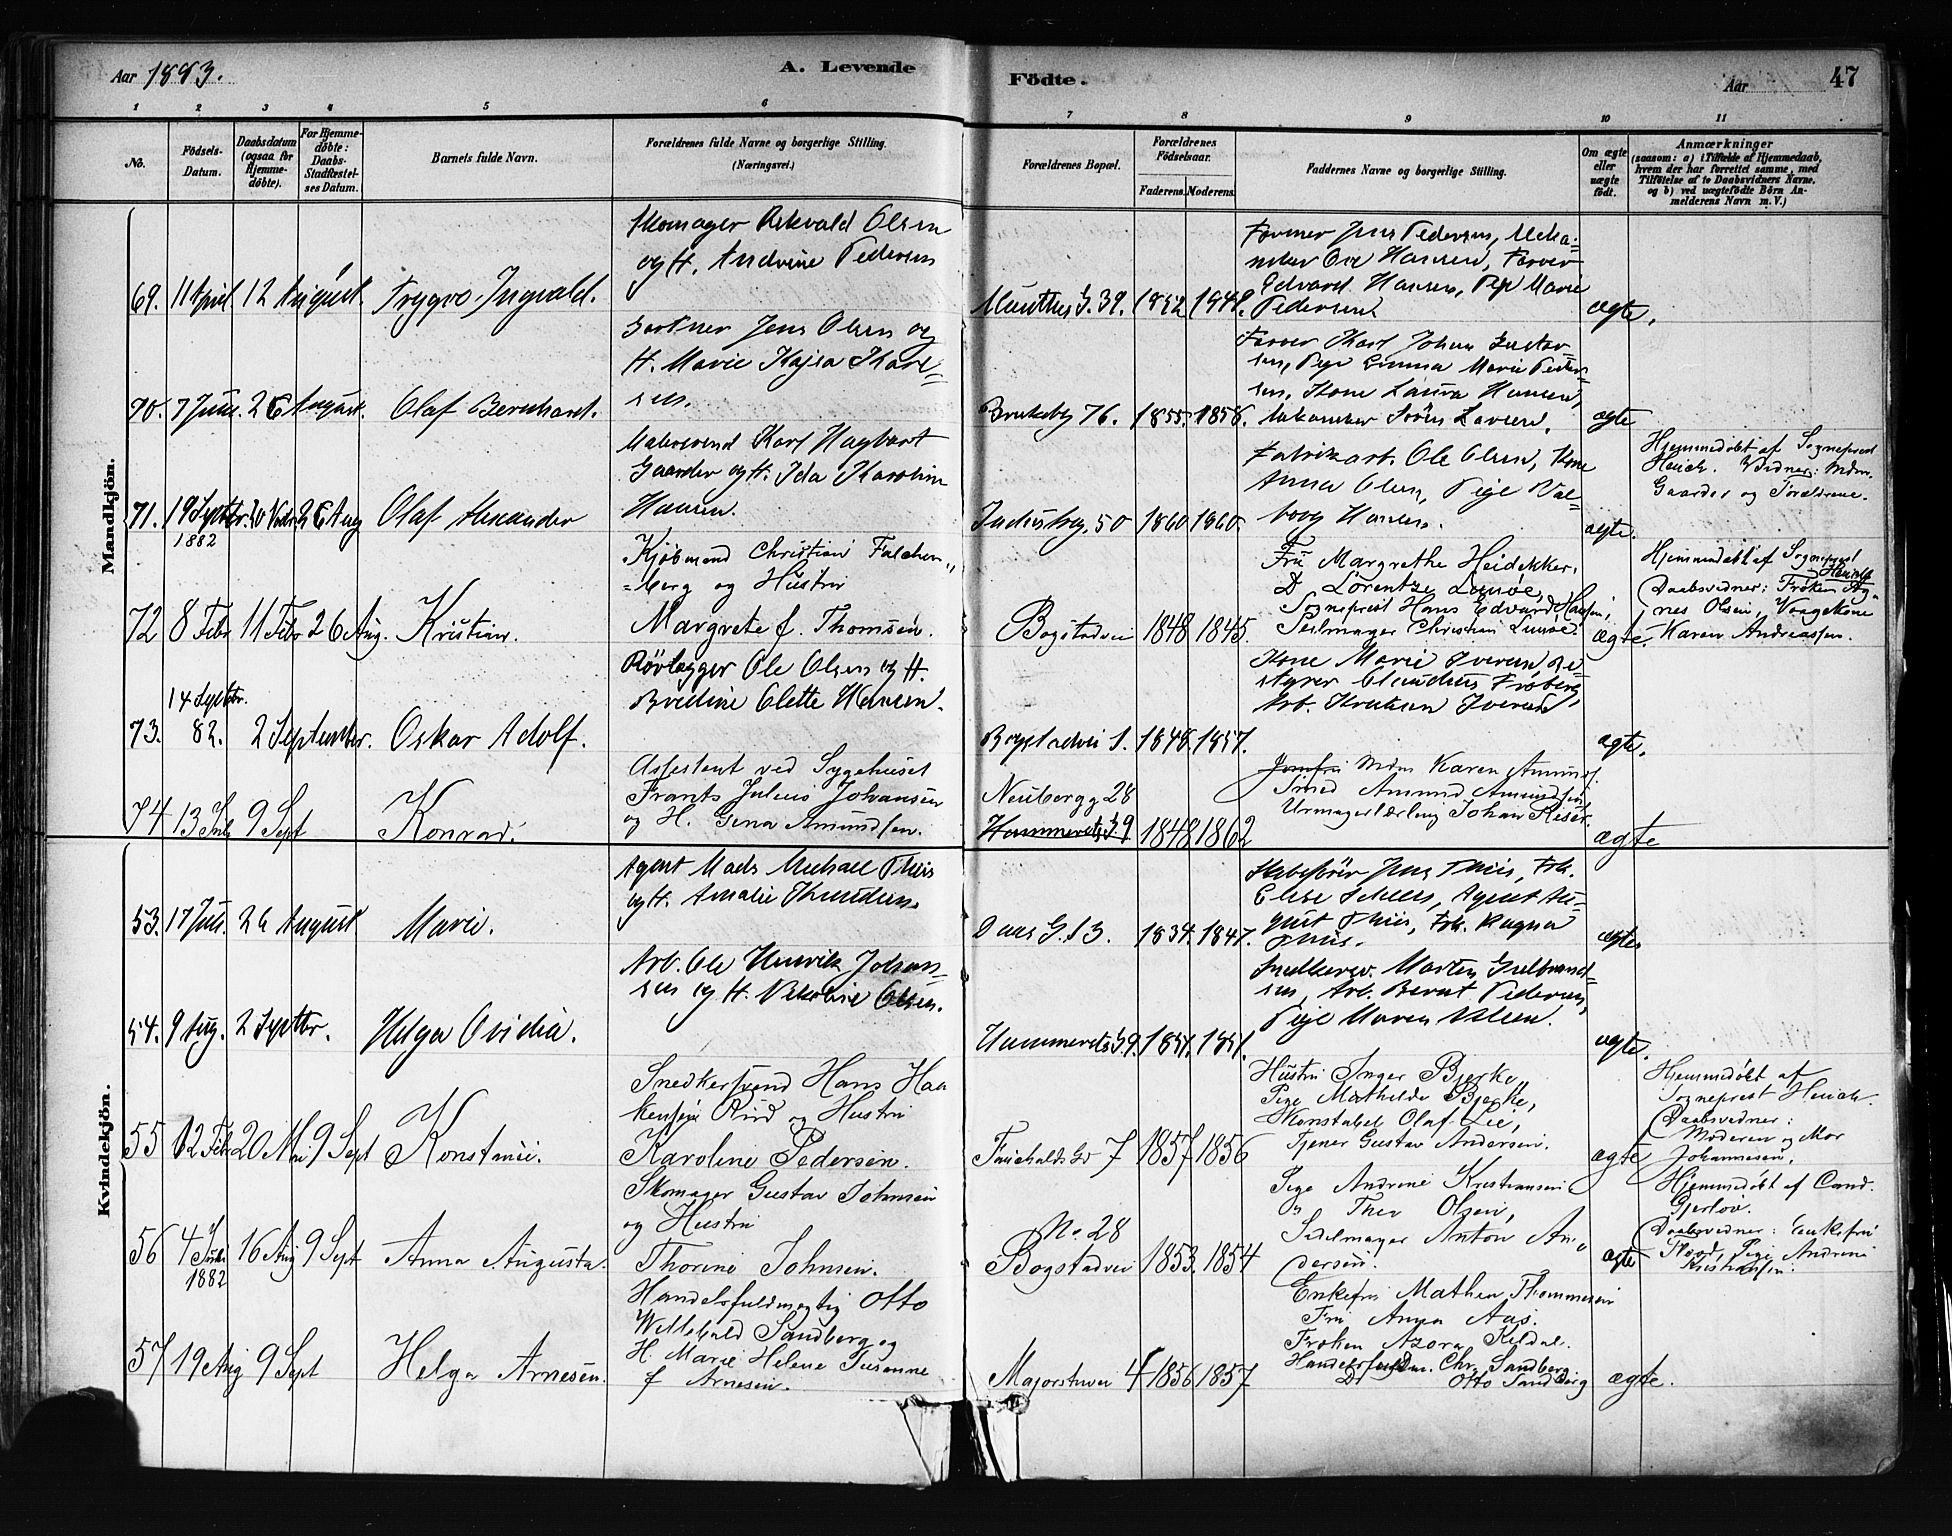 Aar 1883.
A. Levende
Födte.
Aar
47
1 2 3 4 5 6 7 8 9 10 11
No.
Födsels-Datum.
Daabsdatum (ogsaa for Hjemme-döbte).
For Hjemme-döbte: Daabs-Stadfæstel-ses Datum.
Barnets fulde Navn.
Forældrenes fulde Navne og borgerlige Stilling.
(Næringsvei.)
Forældrenes Bopæl.
Forældrenes Födselsaar.
Faderens. Moderens.
Faddernes Navne og borgerlige Stilling.
Om ægte eller uægte født.
Anmærkninger
(saasom: a) i Tilfælde af Hjemmedaab, hvem der har forrettet samme, med Tilföielse af to Daabsvidners Navne, og b) ved uægtefödte Börn Anmelderens Navn m. V.)
Mandkjön.
69. 11 April. 12 August. Trygve Ingvald.
Skomager Olsen
og H. Andrine Pedersen
Munthes G. 39. 1852
Farver Jens Pedersen, Meka-
niker Hansen, Farver
Edvard Hansen, Pige Marie
Pedersen.
ægte.
70. 7 Juni. 26 August. Olaf Bernhard.
Gartner Jens Olsen og
H. Marie Kajsa Karl-
sen.
Briskeby 76. 1855. 1858.
Farver Karl Johan Gustav-
sen, Pige Emma Marie Peder-
sen, Kone Laura Hansen,
Mekaniker Sören Larsen.
ægte
71. 19 Septbr. 1882 26 Aug Olaf Alexander
Malersvend Karl Hagbart
Gaarder og H. Ida Karoline
Hansen.
Industrig. 50 1860. 1860.
Fabrikarb. Ole Olsen, Kone
Anna Olsen, Pige Val-
borg Hansen.
ægte.
Hjemmedöbt af Sogneprest
Heuch. Vidner: Mdm.
Gaarder og Forældrene.
72 8 Febr 11 Febr 26 Aug. Kristian.
Kjöbmand Christian Falchen-
berg og Hustru
Margrete f. Thomsen.
Bogstadvei 1848 1845.
Fru Margrethe Heidekker,
D. Lorentze Lunöe,
Sogneprest Hans Edvard Hansen,
Seilmager Christian Lunöe.
ægte.
Hjemmedöbt af Sogneprest
Heuch
Daabsvidner: Fröken Ag-
nes Olsen, Vaagekone
Karen Andreassen.
73. 14 Septbr. 82. 2 September. Oskar Adolf.
Rörlægger Ole Olsen og H.
Bredine Olette Hansen.
Bogstadvei 1. 1848. 1857.
Kone Marie Iversen, Be-
styrer Claudius Fröberg,
Arb. Iversen
ægte.
74 13 9 Sept Konrad.
Assistent ved Sygehuset
Frants Julius Johansen
og H. Gina Amundsen.
Neubergg 28
Hammersts G. 9 1848 1862
Jomfru Mdm Karen Amunds.
Smed Amund Amundsen
Urmagerlærling Johan
ægte
Kvindekjön.
53. 17 Juli. 26 August Marie.
Agent Mads Michael Thiis
og H. Amalie Knudsen.
Daas G. 13. 1834. 1847.
Skibsförer Jens Thiis, Frk.
Elise Agent Au-
gust Thiis, Frk. Ragna
Thiis.
ægte
54. 9 Aug. 2 Septbr. Helga Ovidia.
Arb. Ole Henrik Johan-
sen og H. Nikoline Olsen.
Hammersts G. 9. 1851. 1851.
Snedkersv. Morten Gulbrand-
sen, Arb. Bernt Pedersen,
Pige Maren Olsen.
ægte.
55 12 Febr 20 Mai 9 Sept Konstance.
Snedkersvend Hans Haa
kensen Rud og Hustru
Karoline Pedersen.
7 1857 1856
Hustru Inger Bjerke,
Pige Mathilde Bjerke,
Konstabel Olaf Lie,
Tjener Gustav Andersen.
ægte
Hjemmedöbt af
Sogneprest Heuch.
Daabsvidner:
Moderen og Mor
Johannesen.
56 4 Juli 1882 16 Aug 9 Sept Anna Augusta.
Skomager Gustav Johnsen
og Hustru
Thorine Johnsen.
No. 28
Bogstadvei 1853. 1854
Pige Andrine Kristiansen
Thea Olsen,
Sadelmager Anton An-
dersen.
ægte
Hjemmedöbt af Cand.
Gjerlöv.
Daabsvidner: Enkefru
Pige Andrine
Kristiansen.
57 19 Aug 9 Sept Helga Arnesen.
Handelsfuldmægtig Otto
Willibald Sandberg og
H. Marie Helene Susanne
f Arnesen.
Majorstuvei 4 1856 1857
Enkefru Mathea Thommesen
Fru Anna Aas.
Fröken Azora Kildal.
Handelsfuldm. Chr. Sandberg
Do Otto Sandberg
ægte.